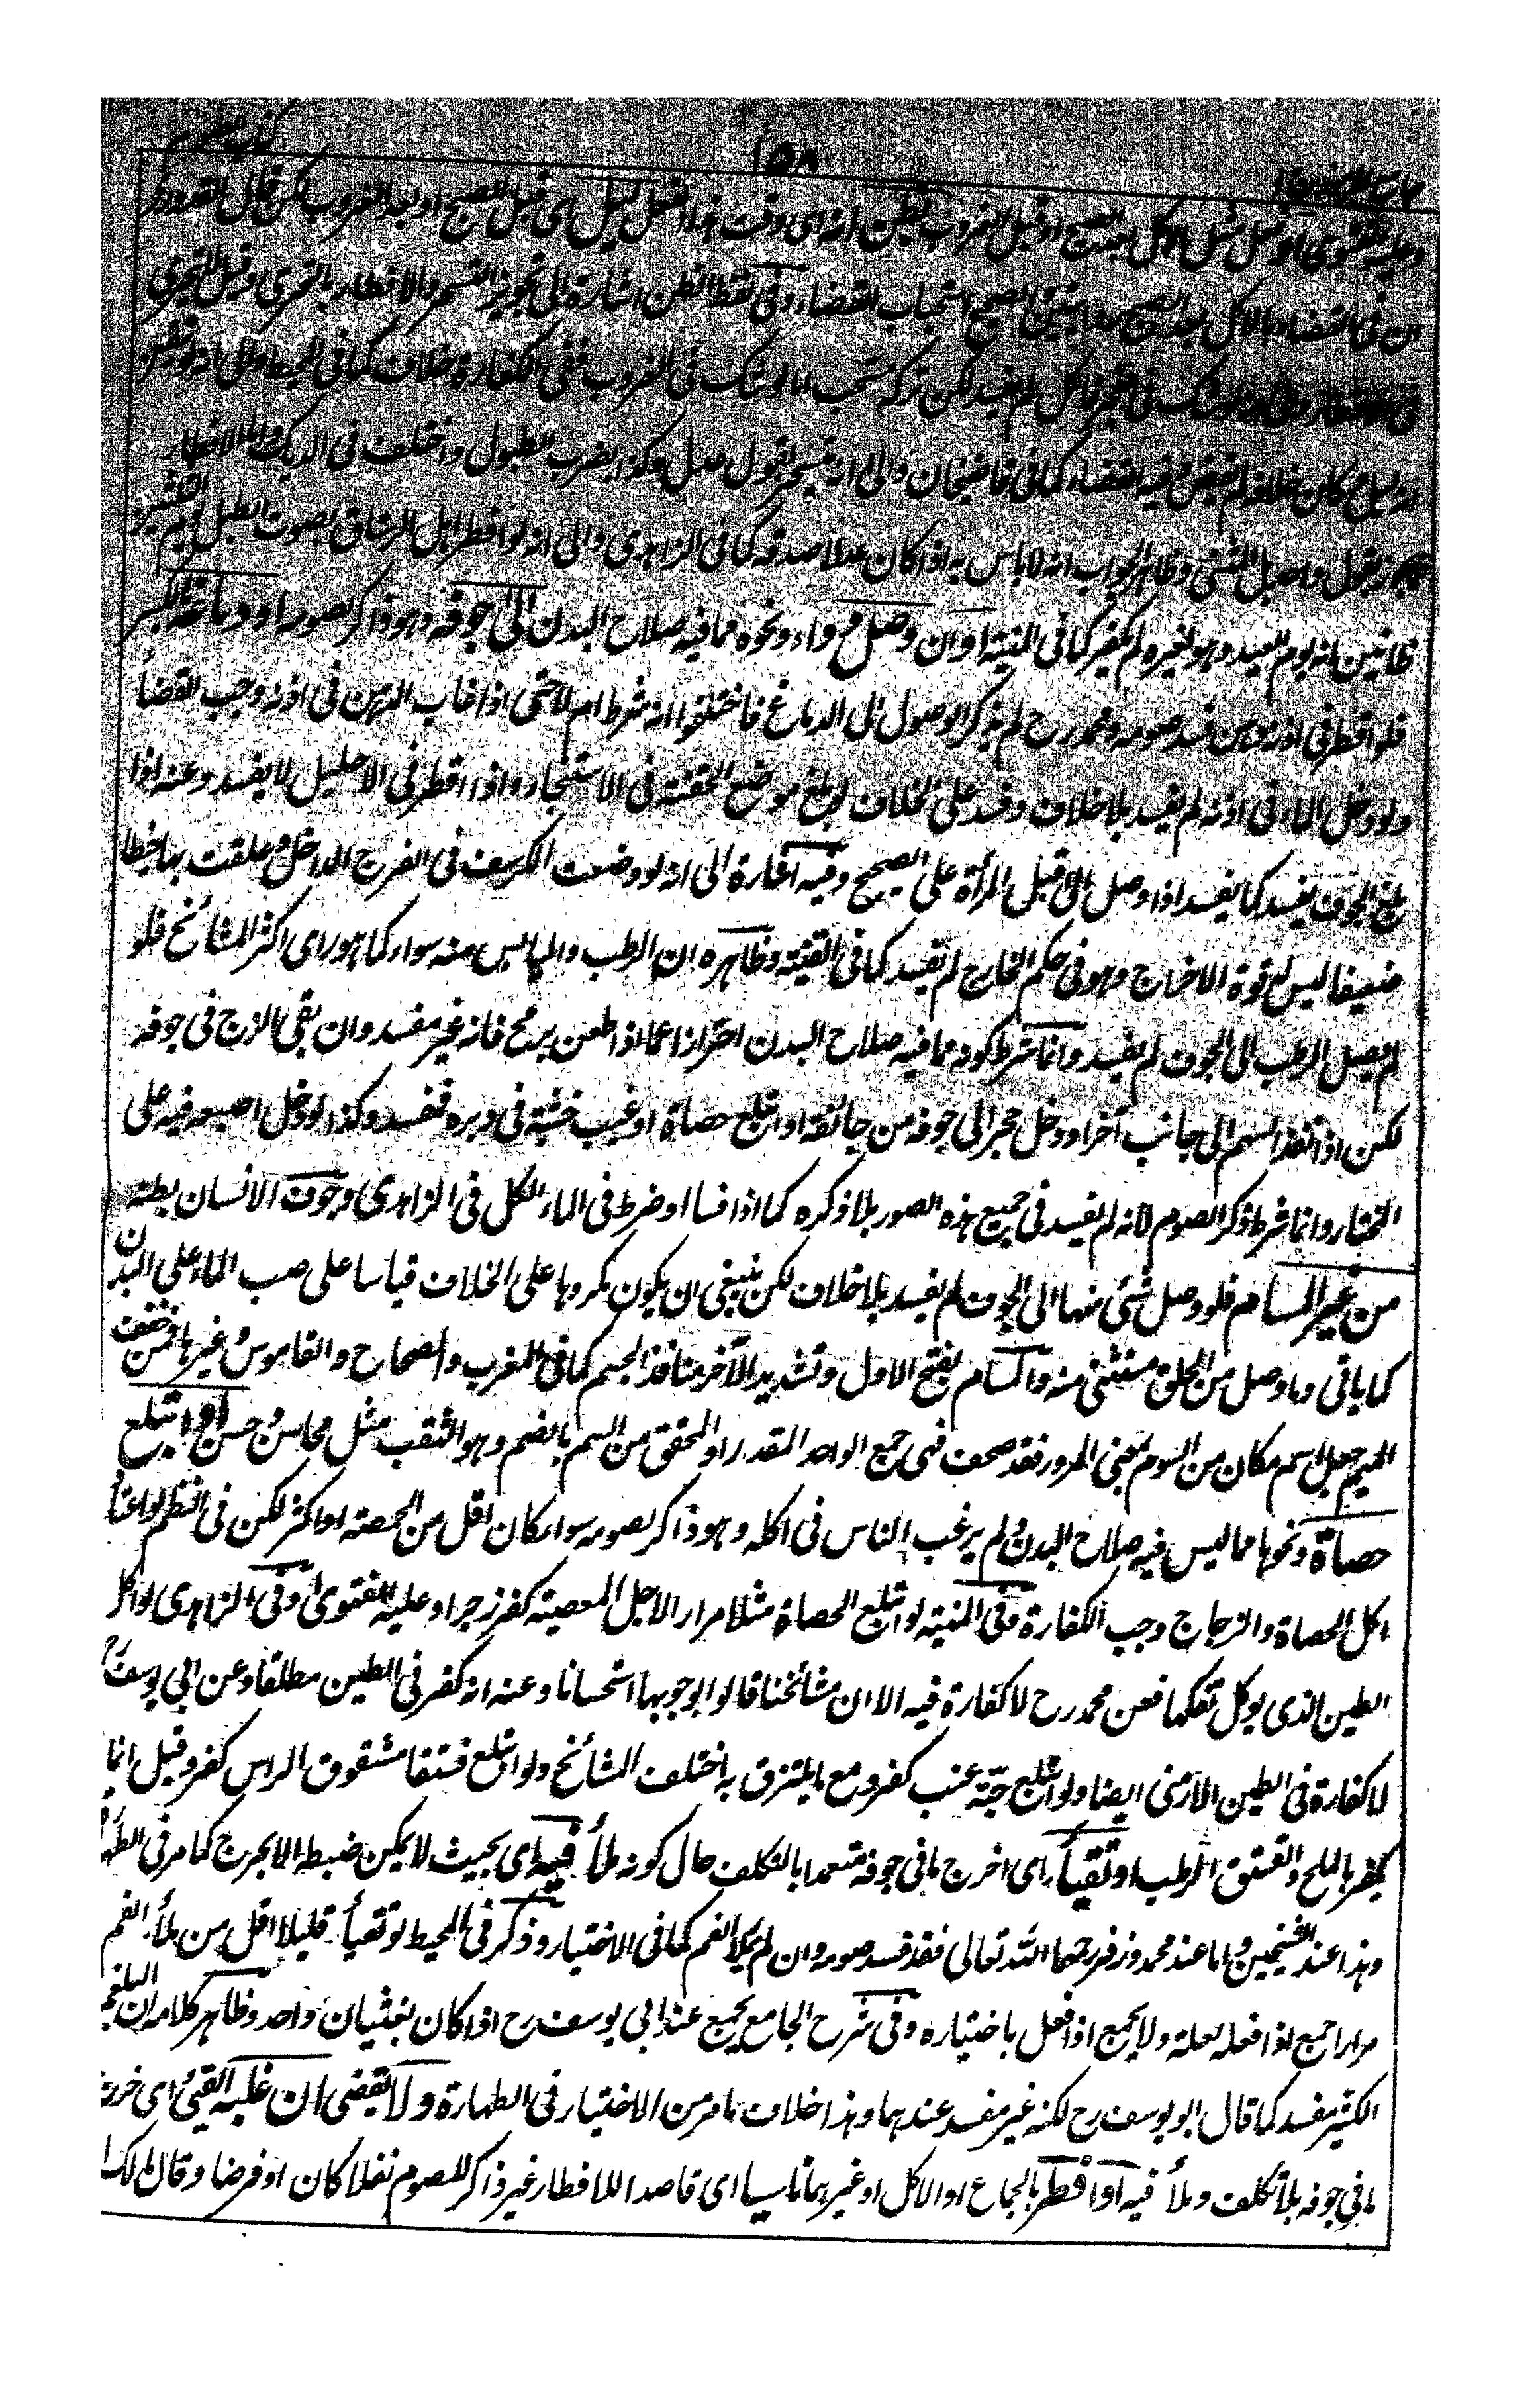 ١٥٨
وعليه الفتوى او فعل مثل الاكل بعد الصبح او قبل الغروب لظن انه اى وقت هذا الفعل ليل اى قبل الصبح او بعد الغروب لكن قال القدورى
ان فى القضاء بالاكل بعد الصبح روايتين الصحيح استحباب القضاء وفى لفظ الظن اشارة الى تجويز التسحر والافطار بالتحرى وقيل لا يتحرى
فى الافطار والى انه لو شك فى الفجر فاكل لم يفسد لكن تركه مستحب اما لو شك فى الغروب ففى الكفارة خلاف كما فى المحيط والى انه لو
كان خلافه لم يقض فيه القضاء كما فى قاضيخان والى انه يتسحر لقول عدل وكذا بضرب الطبول واختلف فى الديك واما الافطار
بقول واحد بل المثنى وظاهر الجواب انه لا باس به اذا كان عدلا صدقه كما فى الزاهدى والى انه لو افطر اهل الرستاق بصوت الطبل يوم الثلثين
ظانين انه يوم العيد وهو لغيره لم يكفر كما فى المنية او ان وصل دواء ونحوه مما فيه صلاح البدن الى جوفه وهو ذاكر لصومه او دماغه بالكسر
فلو اقطر فى اذنه دهن فسد صومه ومحمد رح لم يذكر الوصول الى الدماغ فاختلفوا انه شرط ام لا حتى اذا غاب الدهن فى اذنه وجب القضاء
ولو دخل الماء فى اذنه لم يفسد بلا خلاف وفسد على الخلاف لو بلغ موضع الحقنة فى الاستنجاء واذا اقطر فى الاحليل لا يفسد وعنه اذا
بلغ الجوف يفسد كما يفسد اذا وصل الى قبل المرأة على الصحيح وفيه اشارة الى انه لو وضعت الكرسف فى الفرج الداخل وعلقت بها خيطا
ضعيفا ليس له قوة الاخراج وهو فى حكم الخارج لم تفسد كما فى القنية وظاهره ان الرطب واليابس منه سواء كما هو راى اكثر المشائخ فلو
لم يصل الرطب الى الجوف لم يفسد وانما شرط كونه مما فيه صلاح البدن احترازا عما اذا طعن برمح فانه غير مفسد وان بقى الزج فى جوفه
لكن اذا نفذ السهم الى جانب آخر او دخل حجر الى جوفه من جائفة او ابتلع حصاة او غيب خشبة فى دبره فقسد وكذا لو ادخل اصبعه فيه على
المختار وانما شرط ذكر الصوم لانه لم يفسد فى جميع هذه الصور بلا ذكره كما اذا فسا او ضرط فى الماء الكل فى الزاهدى وجوف الانسان بطنه
من غير المسام فلو وصل شئ منها الى الجوف لم يفسد بلا خلاف لكن ينبغى ان يكون مكروها على الخلاف قياسا على صب الماء على البدن
كما ياتى وما وصل من الحلق مستثنى منه والمسام بفتح الاول وتشديد الآخر منافذ الجسم كما فى المغرب والصحاح والقاموس وغيرها فمن خفف
الميم جعل اسم مكان من السوم بمعنى المرور فقد صحف فهى جمع الواحد المقدر او المحقق من السم بالضم وهو الثقب مثل محاسن وحسن او ابتلع
حصاة ونحوها مما ليس فيه صلاح البدن ولم يرغب الناس فى اكله وهو ذاكر لصومه سواء كان اقل من الحمصة او اكثر لكن فى النظم لو اعتاد
اكل الحصاة والزجاج وجب الكفارة وفى المنية لو ابتلع الحصاة مثلا مرارا لاجل المعصية كفر زجرا وعليه الفتوى وفى الزاهدى لو اكل
الطين الذى يوكل تفكها فعن محمد رح لا كفارة فيه الا ان مشائخنا قالوا بوجوبها استحسانا وعنه انه كفر فى الطين مطلقا وعن ابى يوسف رح
لا كفارة فى الطين الارمنى ايضا ولو ابتلع حبة عنب كفر ومع ما يلتزق به اختلف المشائخ ولو ابتلع فستقا مشقوق الراس كفر وقيل انما
يكفر بالملح والفستق الرطب او تقيأ اى اخرج ما فى جوفه متعمدا بالتكلف حال كونه ملأ فيه اى بحيث لا يمكن ضبطه الا بحرج كما مر فى الطهارة
وهذا عند الشيخين واما عند محمد وزفر رحمهما الله تعالى فقد فسد صومه وان لم يملأ الفم كما فى الاختيار وذكر فى المحيط لو تقيأ قليلا اقل من ملأ الفم
مرارا جمع اذا فعله بعلة ولا يجمع اذا فعل باختياره وفى شرح الجامع يجمع عند ابى يوسف رح اذا كان بغثيان واحد وظاهر كلامه ان البلغم
الكثير مفسد كما قال ابو يوسف رح لكنه غير مفسد عندهما وهذا خلاف ما مر من الاختيار فى الطهارة ولا يقضى ان غلبه القيئ اى خرج
ما فى جوفه بلا تكلف وملأ فيه او افطر بالجماع او الاكل او غيرهما ناسيا اى قاصدا للافطار غير ذاكر للصوم نفلا كان او فرضا وقال مالك